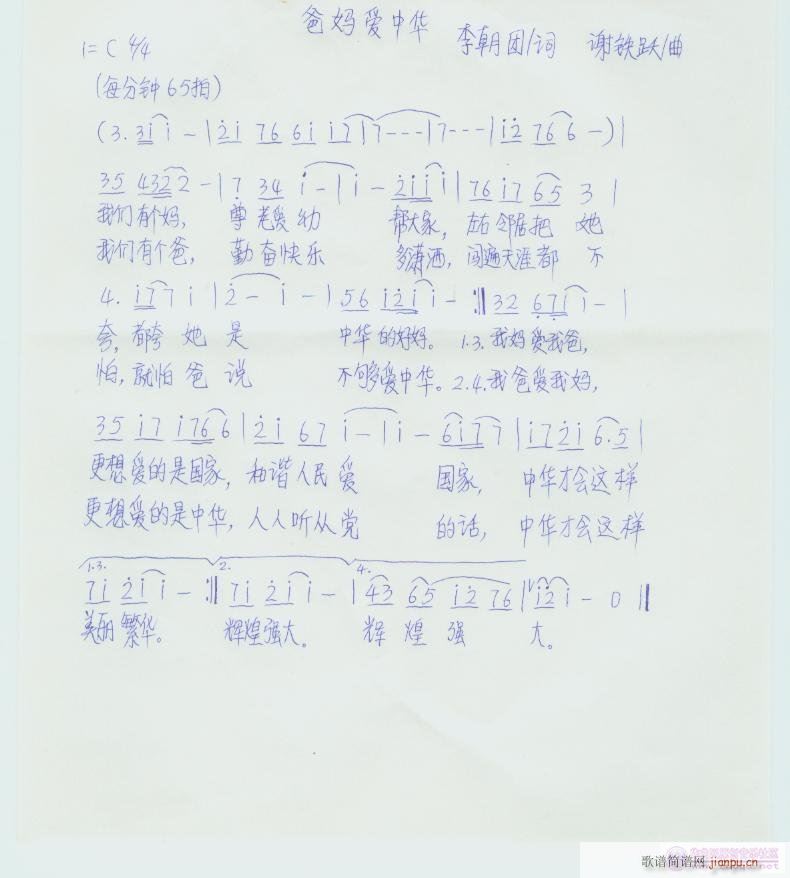 爸妈爱中华
1=C 4/4 李朝团/词 谢铁跃/曲
(每分钟65拍)
(3. 3i i - | 2i 76 6i i7 | 7--- | 7--- | i2 76 6 -) |
35 4322 - | 7 34 i - | i - 2iii | 76 i7 65 3 |
我们有个妈, 尊老爱幼 帮大家, 左右邻居把她
我们有个爸, 勤奋快乐 多潇洒, 闯遍天涯都不
4. i77 i | 2 - i - | 56 i2i i - :| 32 67i i - |
夸, 都夸她是 中华的好妈。 1.3.我妈爱我爸,
怕, 就怕爸说 不够爱中华。 2.4.我爸爱我妈,
35 i7 i766 | 2i 67 i - | i - 6i77 | i7 2i 6.5 |
更想爱的是国家, 和谐人民爱 国家, 中华才会这样
更想爱的是中华, 人人听从党 的话, 中华才会这样
1.3. 2. 4.
7i 2i i - :| 7i 2i i - | 43 65 i2 76 | i2i - 0 ||
美丽繁华。 辉煌强大。 辉煌强 大。
歌谱简谱网 jianpu.cn